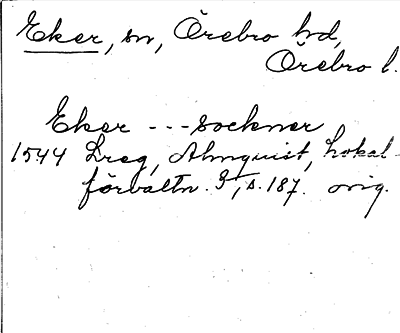 Eker, sn, Örebro hd,
Örebro l.
Eker --- socknar
1544 Dreg, Almquist, Lokal-
förvaltn. I, s. 187. orig.